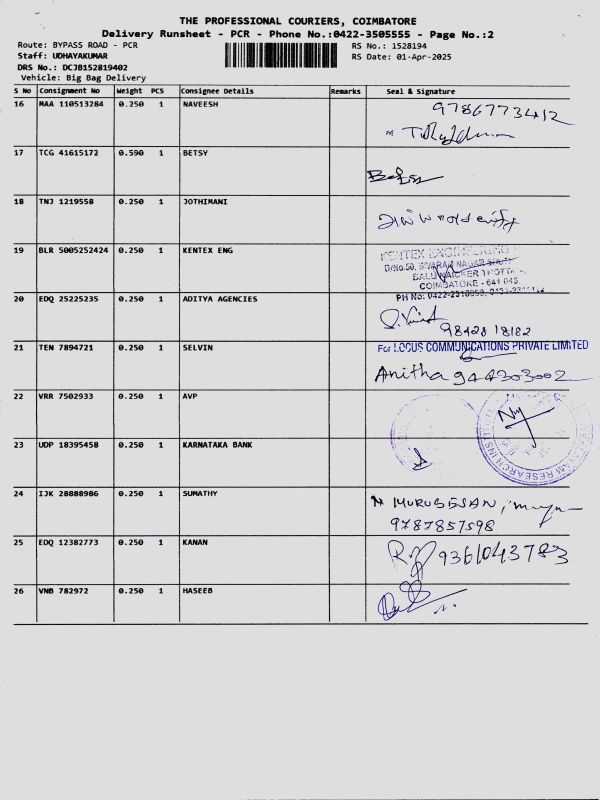 THE PROFESSIONAL COURIERS, COIMBATORE
Delivery Runsheet - PCR - Phone No.:0422-3505555 - Page No.:2
Route: BYPASS ROAD - PCR
RS No.: 1528194
Staff: UDHAYAKUMAR
RS Date: 01-Apr-2025
DRS No.: DCJB152819402
Vehicle: Big Bag Delivery
S No Consignment No Weight PCS Consignee Details Remarks Seal & Signature
16 MAA 110513284 0.250 1 NAVEESH 9786773412
17 TCG 41615172 0.590 1 BETSY
18 TNJ 1219558 0.250 1 JOTHIMANI
19 BLR 5005252424 0.250 1 KENTEX ENG
KENTEX ENGINEERING
COIMBATORE - 641 045
20 EDQ 25225235 0.250 1 ADITYA AGENCIES
98428 18182
21 TEN 7894721 0.250 1 SELVIN
For LOCUS COMMUNICATIONS PRIVATE LIMITED
Anitha 944303002
22 VRR 7502933 0.250 1 AVP
23 UDP 18395458 0.250 1 KARNATAKA BANK
24 IJK 28888986 0.250 1 SUMATHY
MURUGESAN,
9787857598
25 EDQ 12382773 0.250 1 KANAN 9361043783
26 VNB 782972 0.250 1 HASEEB